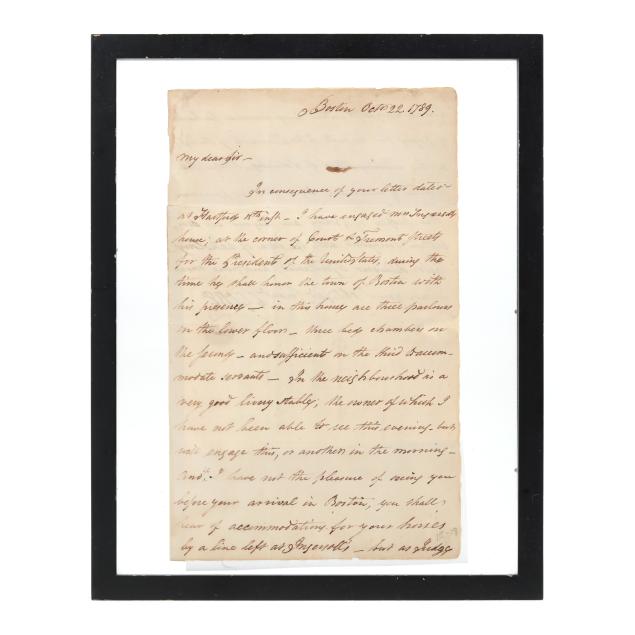 Boston Octr. 22. 1789.
My dear Sir —
In consequence of your letter dated
at Hartford 18th inst — I have engaged Mrs Ingersoll's
house, at the corner of Court & Tremont streets
for the President of the United States, during the
time he shall honor the town of Boston with
his presence — in this house are three parlours
on the lower floor — three bed chambers on
the second — and sufficient on the third to accom-
modate servants — In the neighbourhood is a
very good livery stable, the owner of which I
have not been able to see this evening — but
will engage this, or another in the morning —
I have not the pleasure of seeing you
before your arrival in Boston, you shall
hear of accommodations for your horses
by a line left at Ingersoll's — but as Judge